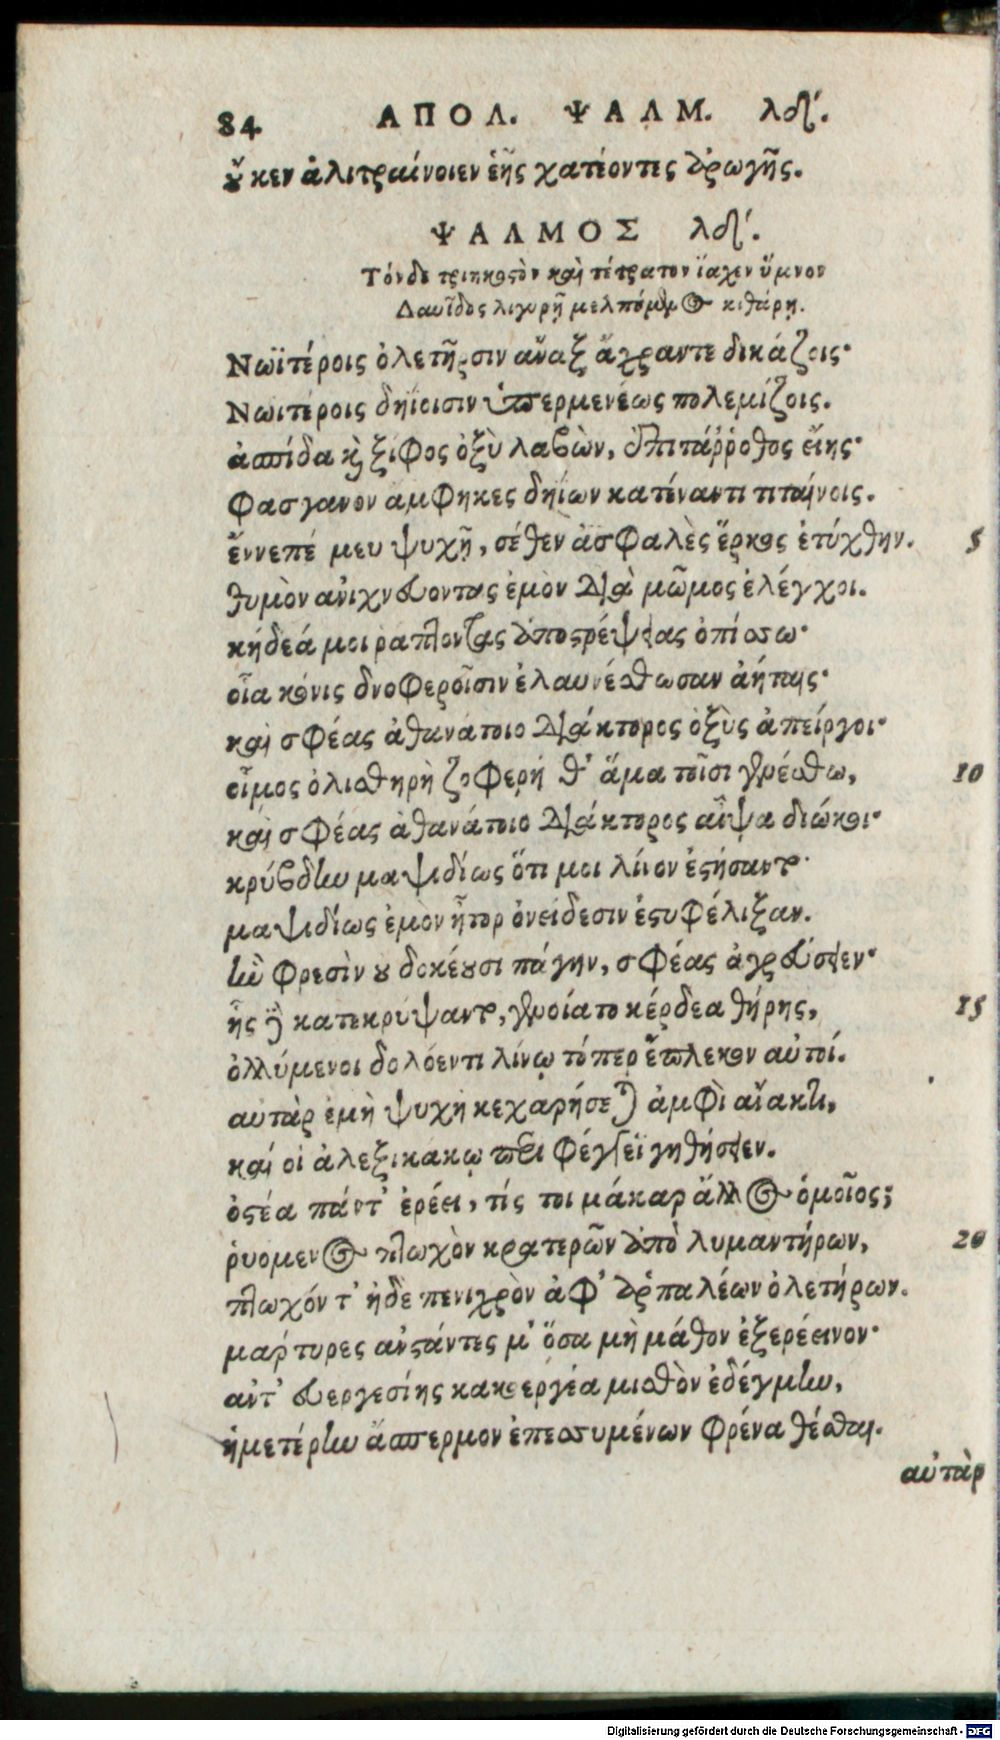 84 ΑΠΟΛ. ΨΑΛΜ. λδʹ.
οὔ κεν ἀλιτραίνοιεν ἑῆς χατέοντες ἀρωγῆς.
ΨΑΛΜΟΣ λδʹ.
Τόνδε τριηκοστὸν καὶ τέτρατον ἴαχεν ὕμνον
Δαυῖδος λιγυρῇ μελπόμενος κιθάρῃ.
Νωϊτέροις ὀλετῆρσιν ἄναξ ἄχραντε δικάζοις·
Νωιτέροις δηΐοισιν ὑπερμενέως πολεμίζοις.
ἀσπίδα καὶ ξίφος ὀξὺ λαβὼν, ἐπιτάῤῥοθος εἴης·
φασγανον αμφηκες δηΐων κατέναντι τιταίνοις.
ἔννεπέ μευ ψυχῇ, σέθεν ἀσφαλὲς ἕρκος ἐτύχθην. 5
θυμὸν ανιχνεύοντας ἐμὸν διὰ μῶμος ἐλέγχοι.
κήδεά μοι ράπτοντας ἀποστρέψειας ὀπίσσω·
οἷα κόνις δνοφεροῖσιν ἐλαυνέσθωσαν ἀήταις·
καὶ σφέας ἀθανάτοιο διάκτορος ὀξὺς ἀπείργοι·
οἶμος ὀλισθηρὴ ζοφερή θ' ἅμα τοῖσι γενέσθω, 10
καὶ σφέας ἀθανάτοιο διάκτορος αἶψα διώκοι·
κρύβδην μαψιδίως ὅτι μοι λίνον ἐστήσαντο·
μαψιδίως ἐμὸν ἦτορ ὀνείδεσιν ἐστυφέλιξαν.
ἣν φρεσὶν οὐ δοκέουσι πάγην, σφέας ἀγρεύσειεν·
ἧς δὲ κατεκρύψαντο, γενοίατο κέρδεα θήρης, 15
ὀλλύμενοι δολόεντι λίνῳ τόπερ ἔπλεκον αὐτοί.
αὐτὰρ ἐμὴ ψυχὴ κεχαρήσεται ἀμφὶ ἄνακτι,
καί οἱ ἀλεξικάκῳ περὶ φέγγεϊ γηθήσειεν.
ὀστέα πάντ' ἐρέει, τίς τοι μάκαρ ἄλλος ὁμοῖος;
ῥυομενος πτωχὸν κρατερῶν ἀπὸ λυμαντήρων, 20
πτωχόν τ' ἠδὲ πενιχρὸν ἀφ' ἁρπαλέων ὀλετήρων.
μαρτυρες ἀνστάντες μ' ὅσα μὴ μάθον ἐξερέεινον·
αντ' εὐεργεσίης κακοεργέα μισθὸν ἐδέγμην,
ἡμετέρην ἄσπερμον ἐπεσσυμένων φρένα θέσθαι.
αὐτὰρ
Digitalisierung gefördert durch die Deutsche Forschungsgemeinschaft - DFG